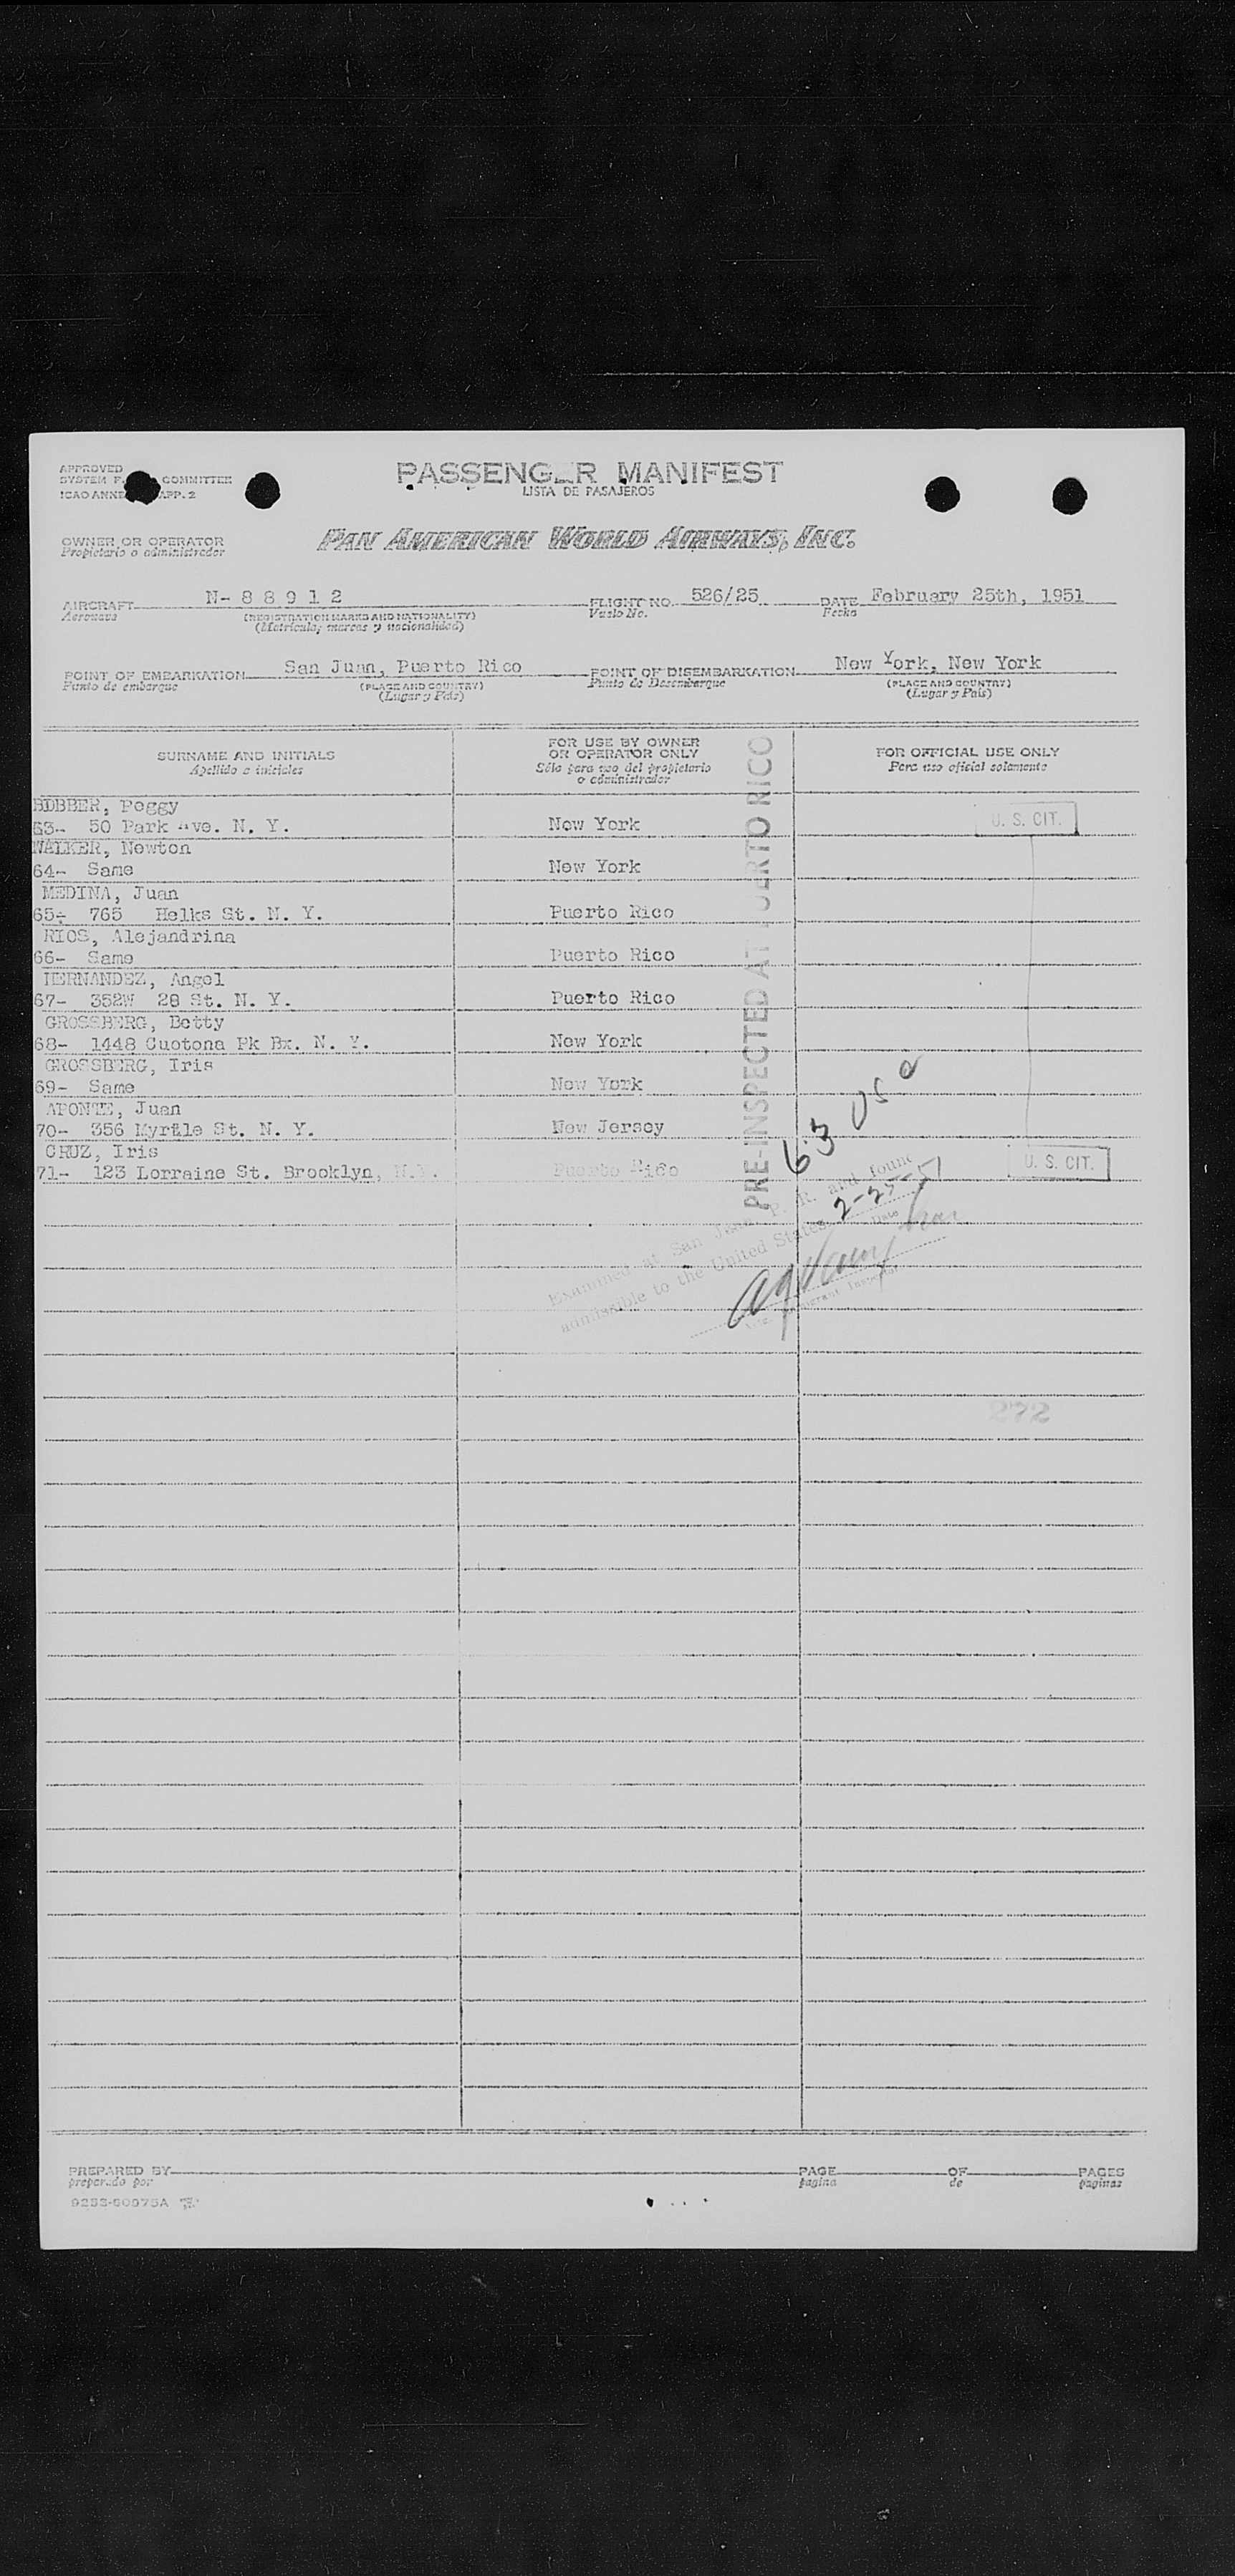 APPROVED
SYSTEM COMMITTEE
ICAO APP. 2
PASSENGER MANIFEST
LISTA DE PASAJEROS
OWNER OR OPERATOR
Propietario o administrador
PAN AMERICAN WORLD AIRWAYS, INC.
AIRCRAFT N- 8 8 9 1 2 FLIGHT NO. 526/25 DATE February 25th, 1951
Aeronave (REGISTRATION MARKS AND NATIONALITY) Vuelo No. Fecha
(Matricula, marcas y nacionalidad)
POINT OF EMBARKATION San Juan, Puerto Rico POINT OF DISEMBARKATION New York, New York
Punto de embarque (PLACE AND COUNTRY) Punto de Desembarque (PLACE AND COUNTRY)
(Lugar y País) (Lugar y País)
SURNAME AND INITIALS FOR USE BY OWNER OR OPERATOR ONLY FOR OFFICIAL USE ONLY
Apellido e iniciales Sólo para uso del propietario o administrador Para uso oficial solamente
PRE-INSPECTED AT RICO
Peggy
63- 50 Park Ave. N. Y. New York U. S. CIT.
WALKER, Newton
64- Same New York
MEDINA, Juan
65- 765 Helks St. N. Y. Puerto Rico
RIOS, Alejandrina
66- Same Puerto Rico
HERNANDEZ, Angel
67- 352W 28 St. N. Y. Puerto Rico
GROSSBERG, Betty
68- 1448 Cuotona Pk Bx. N. Y. New York
GROSSBERG, Iris
69- Same New York
APONTE, Juan
70- 356 Myrtle St. N. Y. New Jersey
CRUZ, Iris
71- 123 Lorraine St. Brooklyn, N.Y. Puerto Rico U. S. CIT.
63 USC
Examined at San Juan, P. R. and found
admissible to the United States 2-25-51
Date
Immigrant Inspector
272
PREPARED BY PAGE OF PAGES
preparado por página de páginas